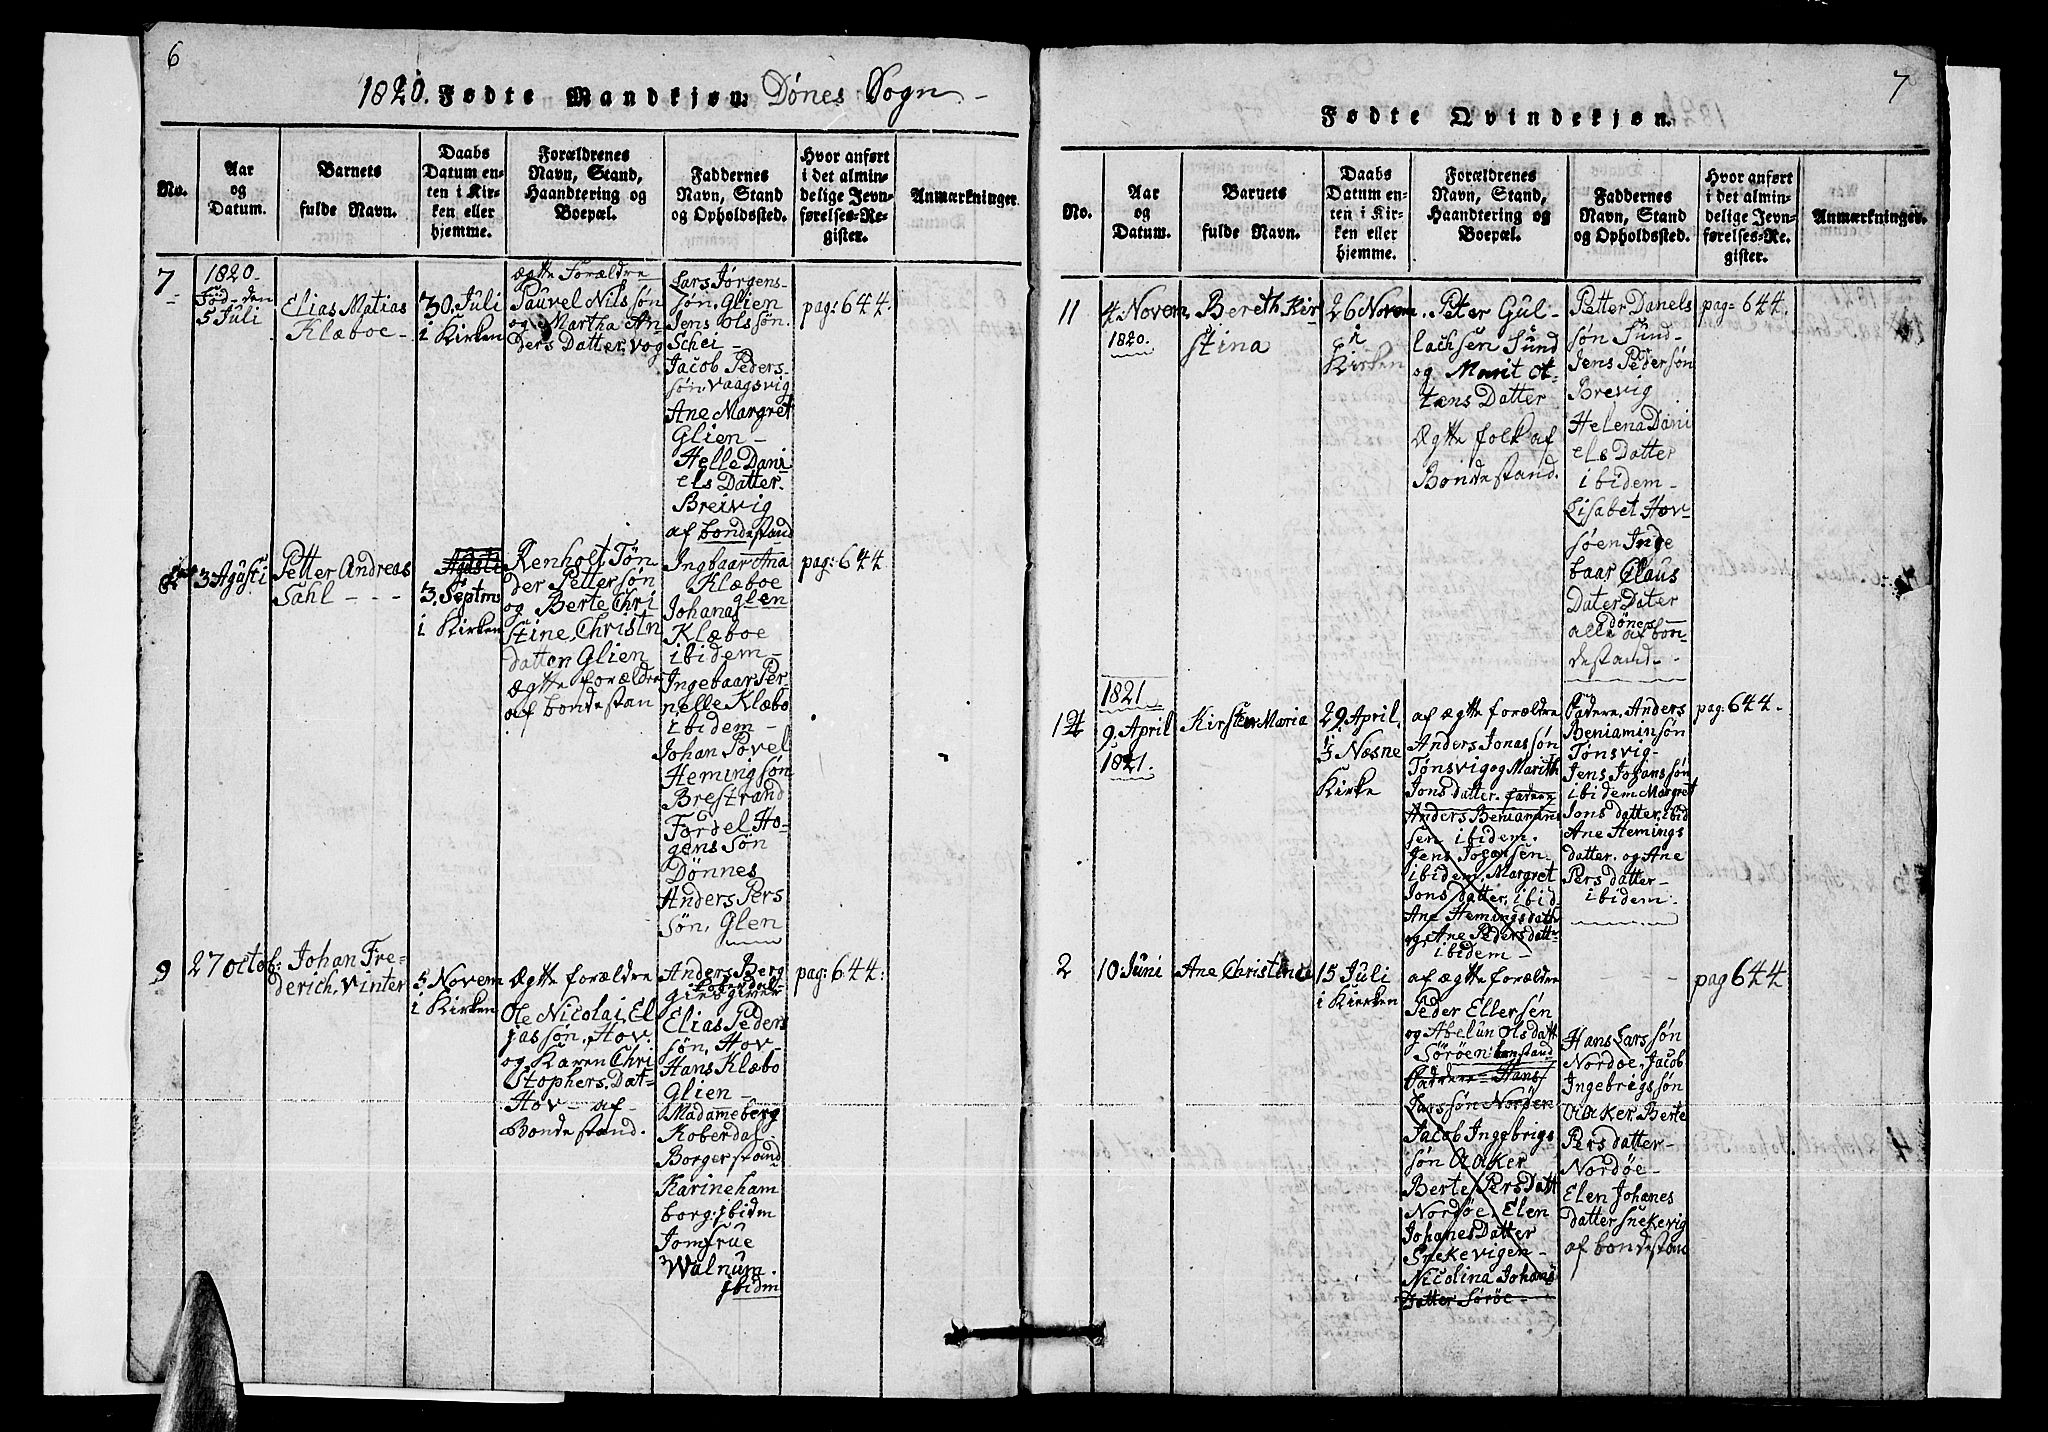 6
1820. Fødte Mandkjøn. Dønes Sogn
No.
Aar
og
Datum.
Barnets
fulde Navn.
Daabs
Datum en-
ten i Kir-
ken eller
hjemme.
Forældrenes
Navn, Stand,
Haandtering og
Boepæl.
Faddernes
Navn, Stand
og Opholdssted.
Hvor anført
i det almin-
delige Jevn-
førelses-Re-
gister.
Anmærkninger.
7
1820.
Fød den
5 Juli
Elias Matias
Klæboe
30. Juli
i Kirken
Ægtte Forældre
Pauvel Nils søn
og Martha An
ders Datter, vog
Lars Jørgens-
søn, Glien
Jens Olssøn.
Schei
Jacob Peders-
søn, vaagsvig
Ane Margret
Glien
Helle Dani
els Datter.
Breivig
af bondestand
pag: 644.
3 Agusti
Petter Andreas
Sahl
Agusti
3. Septm
i Kirken
Renholt Tøn
der Pettersøn
og Berte Chri
stine, Christn
datter Glien
Ægtte forældre
af bondestan
Ingbaar Ana
Klæboe
glen
Johana
Klæboe
ibidem
Ingebaar Per-
nelle Klæbo
ibidem
Johan Povel
Heming søn
Brestrand
Fordel Ho-
gens søn
Dønnes
Anders Pers
søn, Glen
pag: 644
9
27 octob:
Johan Fre-
derich, Vinter
5 Novem
i Kirken
Ægtte forældre
Ole Nicolai El
jassøn, Hov.
og Karen Chri
stophers. Dat-
Hov af
Bondestand.
Anders Berg
Koberdal
giesgiver
Elias Peders
søn, Hov
Hans Klæbo
Glien
Madame berg
Koberdal
Borgerstand
Karine ham
borg. ibidm
Jomfrue
Walnum.
ibidm
pag: 644:
7
Fødte Qvindekjøn.
No.
Aar
og
Datum.
Barnets
fulde Navn.
Daabs
Datum en-
ten i Kir-
ken eller
hjemme.
Forældrenes
Navn, Stand,
Haandtering og
Boepæl.
Faddernes
Navn, Stand
og Opholdssted.
Hvor anført
i det almin-
delige Jevn-
førelses-Re-
gister.
Anmærkninger.
11
4. Novem
1820.
Bereth Kir
stina
26 Novem
i
Kirken
Peter Gul-
lachsen Sund
og Marit ot-
tens Datter
Ægtte folk af
Bondestand.
Petter Danels
søn Sund
Jens Pedersøn
Brevig
Helena Dani
els Datter
ibidem
Lisabet Hov-
søen Inge
baar Claus
Dater Dater
dønes
alle af bon-
destand
pag: 644.
1821
1
9. April
1821.
Kirsten Maria
29 April.
i Næsne
Kirke
af ægtte forældre
Anders Jonassøn
Tønsvig og Marith
Jons datter. fadere
Anders Beniamns
sen ibidem.
Jens Johansen.
ibidem, Margret
Jons datter, ibid
Ane Hemingsdatt
og, Ane Pedersdatt
ibidem
Fadere, Anders
Beniaminsøn
Tønsvig
Jens Johans søn
ibidem Margret
Jons datter, ibid
Ane Hemings
datter. og Ane
Pers datter
ibidem.
pag: 644.
2
10 Juni
Ane Christence
15 Juli
i Kirken
af ægtte forældre
Peder Ellersen
og Abelun olsdatt
Sørøen: bonstand
Faddere Hans
Lars søn Nordøen
Jacob Ingebrigs
søn Aaker
Berte Persdatt
Nordøe, Elen
Johanes Datter
Snekevigen
Nicolina Johans
datter Sørøe
Hans Lars søn
Nordøe, Jacob
Ingebrigsøn
Aaker Berte
Pers datter
Nordøe
Elen Johanes
datter snekevig
af bondestand
pag 644